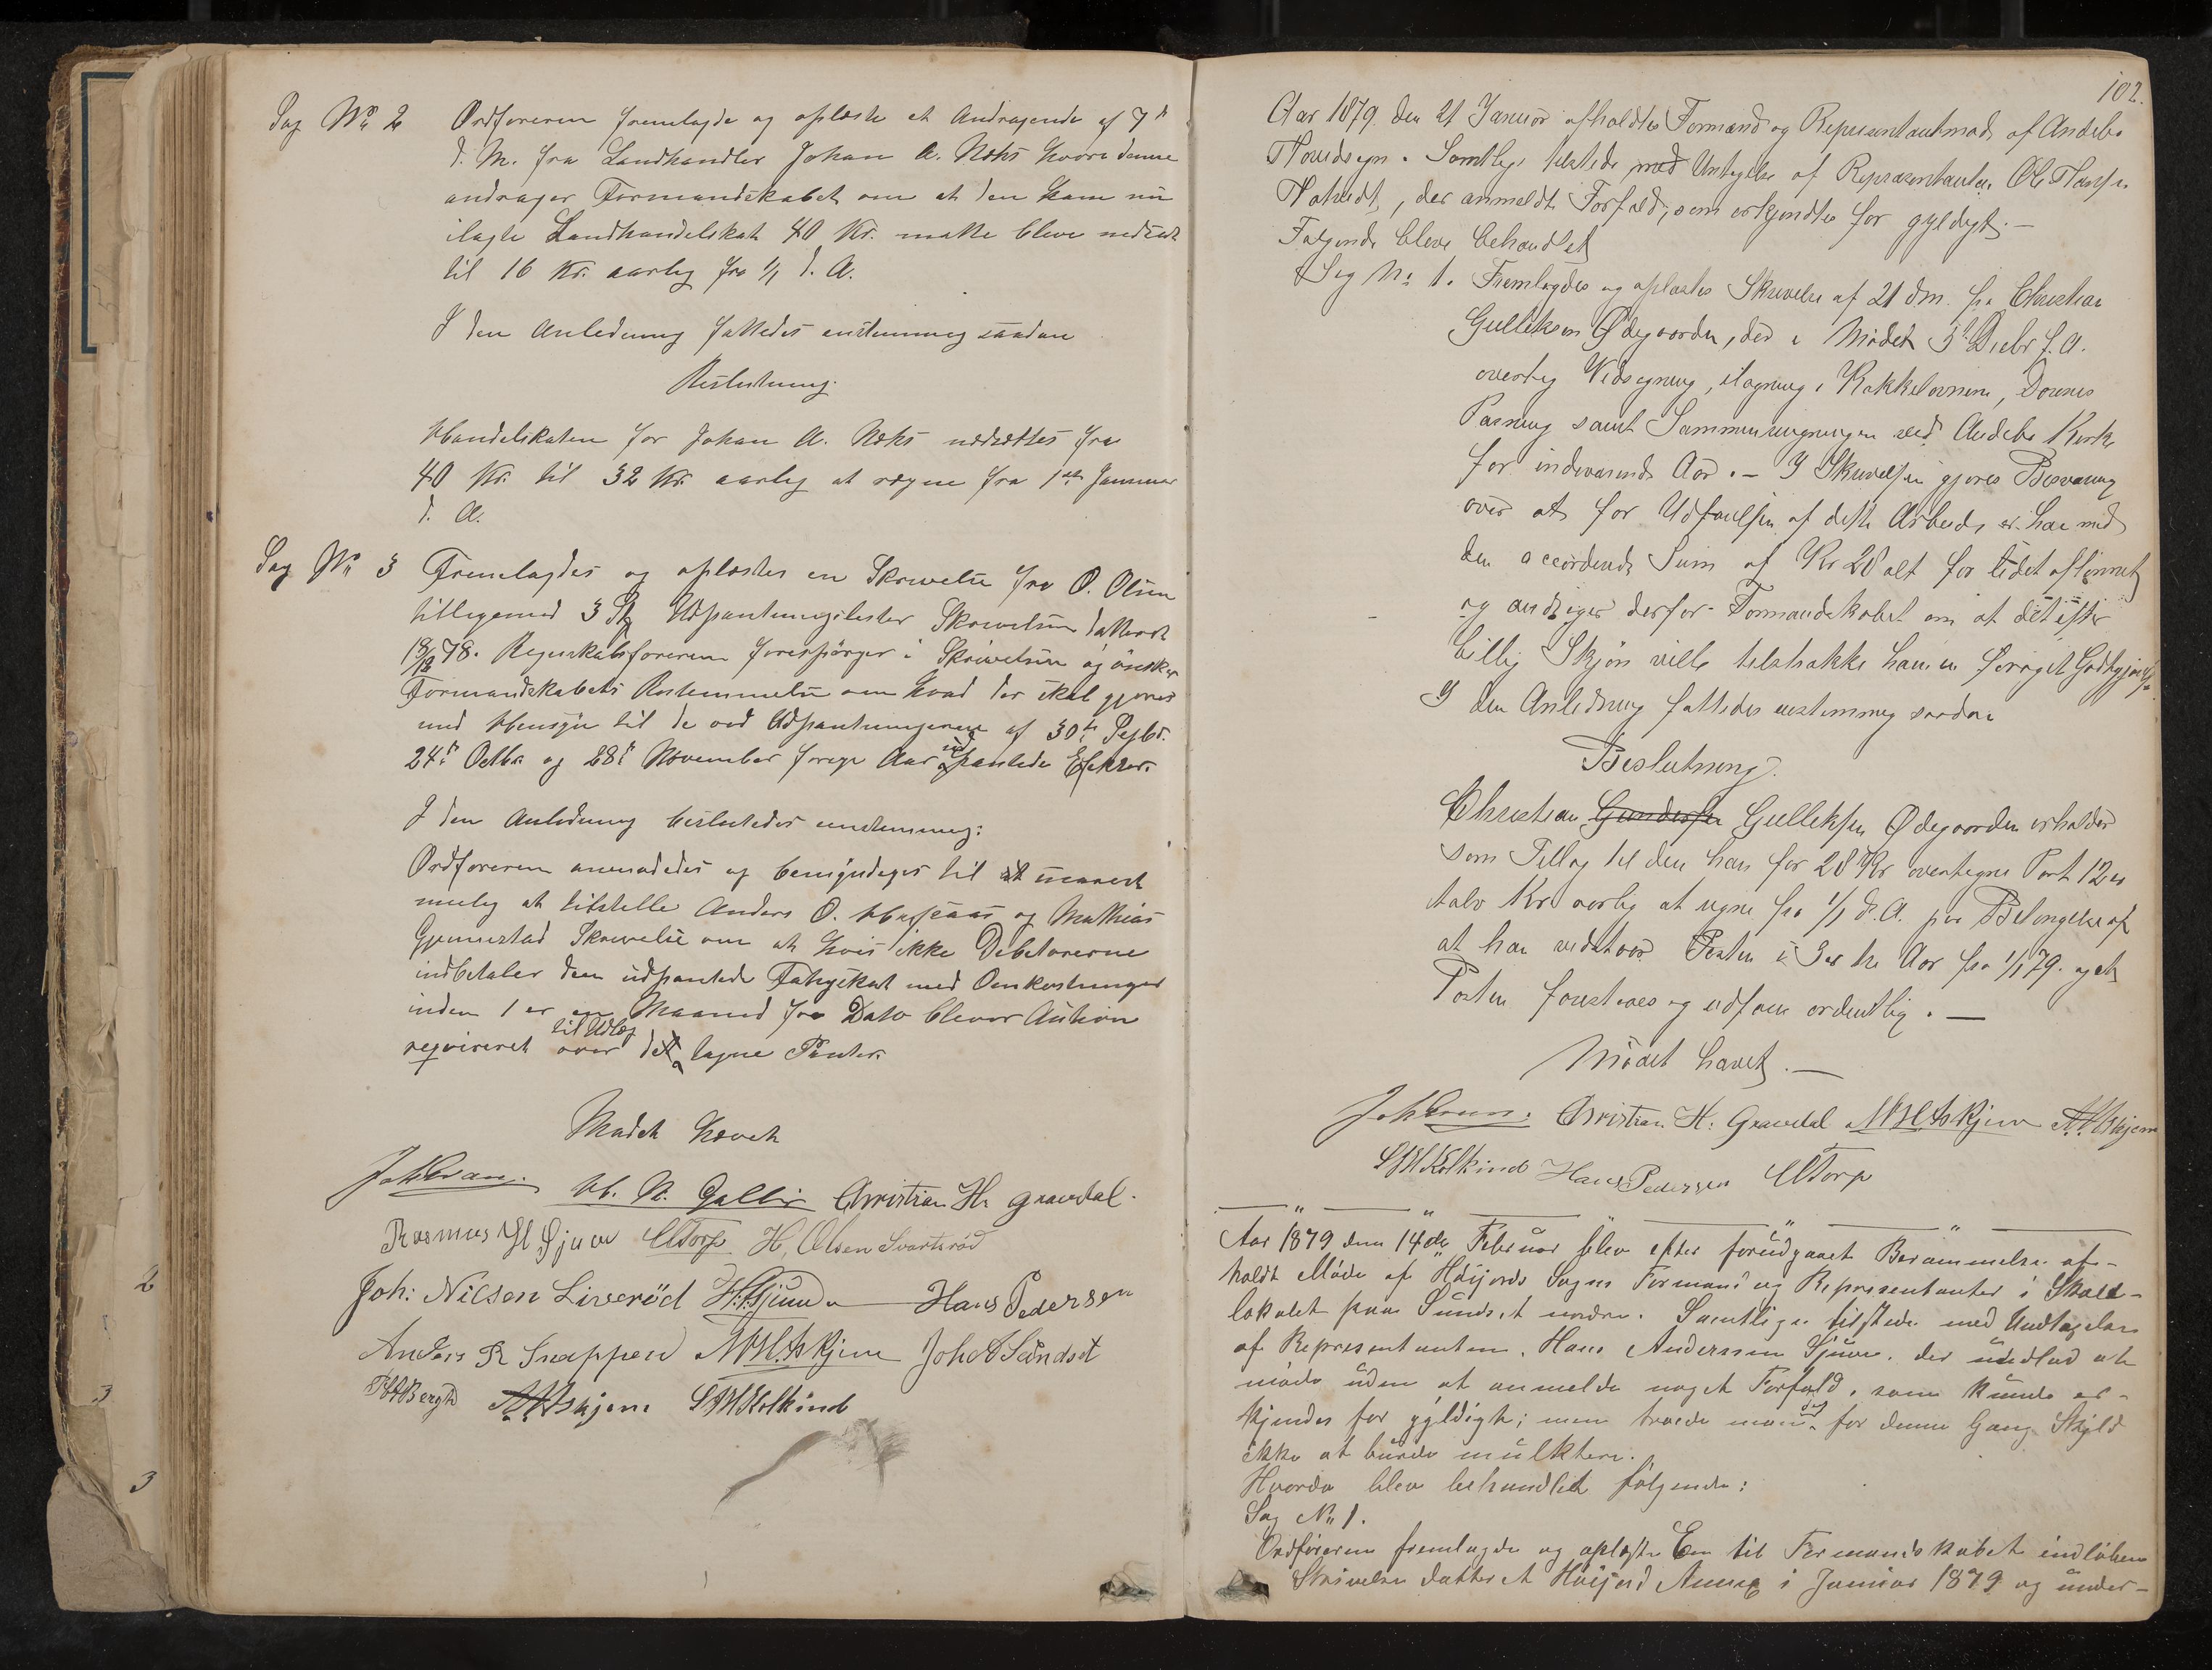 Sag No 2 Ordføreren fremlagde og oplæste et Andragende af 7de
d. M. fra Landhandler Johan A. Næhs hvori denne
andrager Formandskabet om at den ham nu
ilagte Landhandelskat 40 Kr. maatte blive nedsat
til 16 Kr. aarlig fra 1/1 d. A.
I den Anledning fattedes enstemmig saadan
Beslutning.
Handelskaten for Johan A. Næhs nedsættes fra
40 Kr. til 32 Kr. aarlig at regne fra 1ste Januar
d. A.
Sag No 3 Fremlagdes og oplæstes en Skrivelse fra O. Olsen
tilligemed 3 Stk Udpantningslister Skrivelsen datteret
78. Regnskabsføreren forespörger i Skrivelsen og önsker
Formandskabets Bestemmelse om hvad der skal gjöres
med Hensyn til de ved Udpantningerne af 30te Septbr.
24de Octbr og 28de November forige Aar udpantede Efekter.
I den Anledning besluttedes enstemmig:
Ordføreren anmodedes og bemyndiges til snarest
mulig at tilstille Anders O. og Mathias
Gjennestad Skrivelse om at hvis ikke Debetorerne
indbetaler den udpantede Fatigskat med Omkostninger
inden 1 er en Maaned fra Dato bliver Auktion
reqvireret over det til Udlæg tagne Panter.
Mødet hævet
H. N. Gallis Christian H. Gravdal.
Rasmus H Gjuve CTorp H. Olsen Svartsrød
Joh: Nilsen Liverød H. Gjunda Hans Pedersen
Anders R Snappen M. H. Askjem Joh A Sundset
Bergh A. A. Askjem S M Kolkind
102.
Aar 1879 den 21 Januar afholdtes Formand og Representantmøde af Andebo
Hovedsogn. Samtlige tilstede med Untagelse af Representanten Ole Hansen
, der anmeldte Forfald, som erkjendtes for gyldigt. —
Følgende bleve behandlet
Sag No 1. Fremlagdes og oplæstes Skrivelse af 21 dm. fra Christian
Gulliksen Ødegaarden, der i Mødet 3de Decbr f. A.
overtog Vedsagning, ilægning i Kakkelovnene, Dørenes
Pasning samt Sammenringningen ved Andebo Kirke
for indeværende Aar. — I Skrivelsen gjøres Besværing
over at for Udførelsen af dette Arbeide er han med
den accorderede Sum af Kr 28 alt for lidet aflönnet
og andrager derfor Formandskabet om at det efter
billig Skjön ville tilstrække ham en forøget Godtgjørelse
I den Anledning fattedes enstemmig saadan
Beslutning.
Christian Gundersen Gulliksen Ødegaarden erholder
som Tillæg til den han for 28 Kr overtagne Post 12
tolv Kr aarlig at regne fra 1/1 d. A. paa Betingelse af
at han vedstaar Posten i 3 tre Aar fra 1/1 79. og at
Posten forestaaes og udføres ordentlig. —
Mödet hævet. —
Christian H. Gravdal M. H. Askjem A. A. Askjem
S M Kolkind Hans Pedersen CTorp
Aar 1879 den 14de Februar blev efter forudgaaet Berammelse af-
holdt Möde af Höijords Sogns Formænd og Representanter i Skole-
lokalet paa Sundset nordre. Samtlige tilstede med Undtagelse
af Representanten Hans Anderssen Gjuve, der undlod at
möde uden at anmelde noget Forfald, som kunde er-
kjendes for gyldigt; men troede man dog for denne Gang Skyld
ikke at burde mulktere.
Hvorda blev behandlet fölgende:
Sag No 1.
Ordföreren fremlagde og oplæste En til Formandskabet indløben
Skrivelse datteret Höijord Annex i Januar 1879 og under-